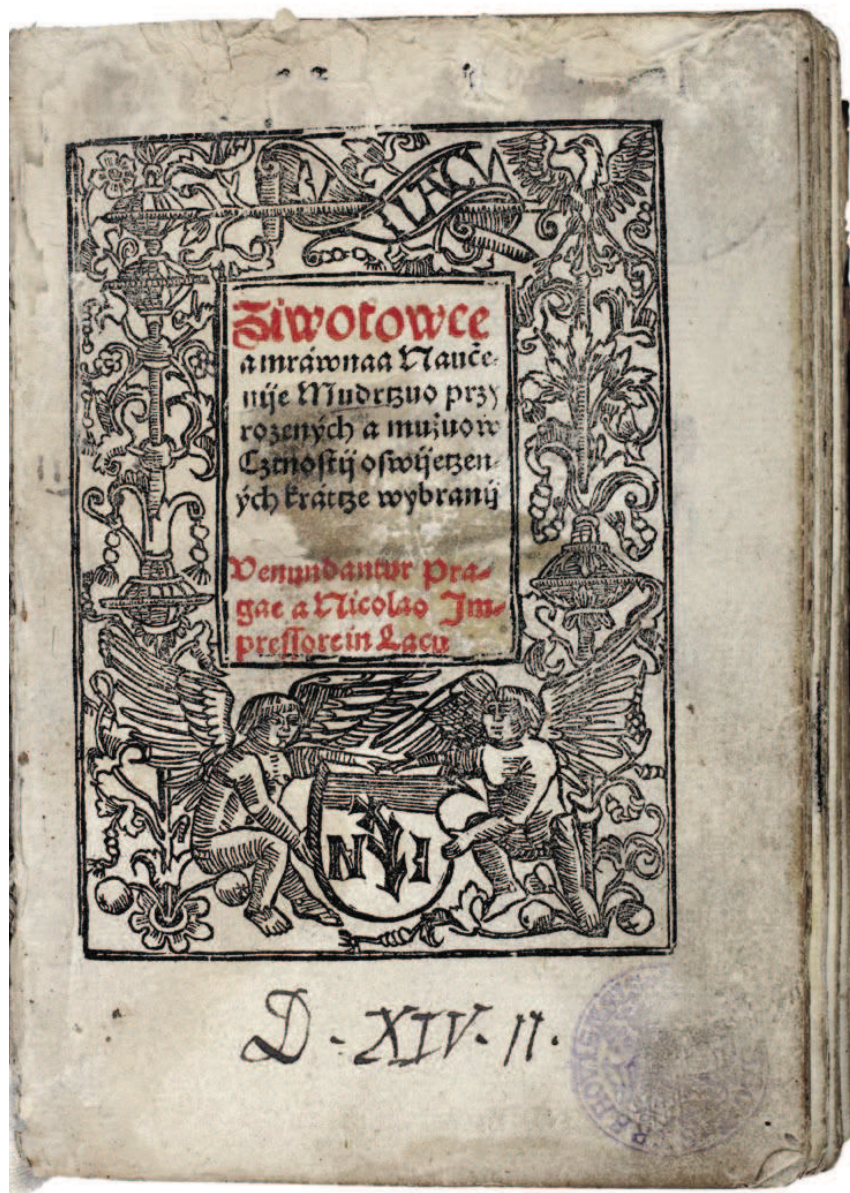 LACV
Ziwotowce
a mráwnaa Nauče-
nije Mudrtzuo przy
rozených a mužuow
Cztnostij oswijetzen-
ých kráttze wybranij
Venundantur Pra-
gae a Nicolao Im-
pressore in Lacu
N I
D. XIV. 11.